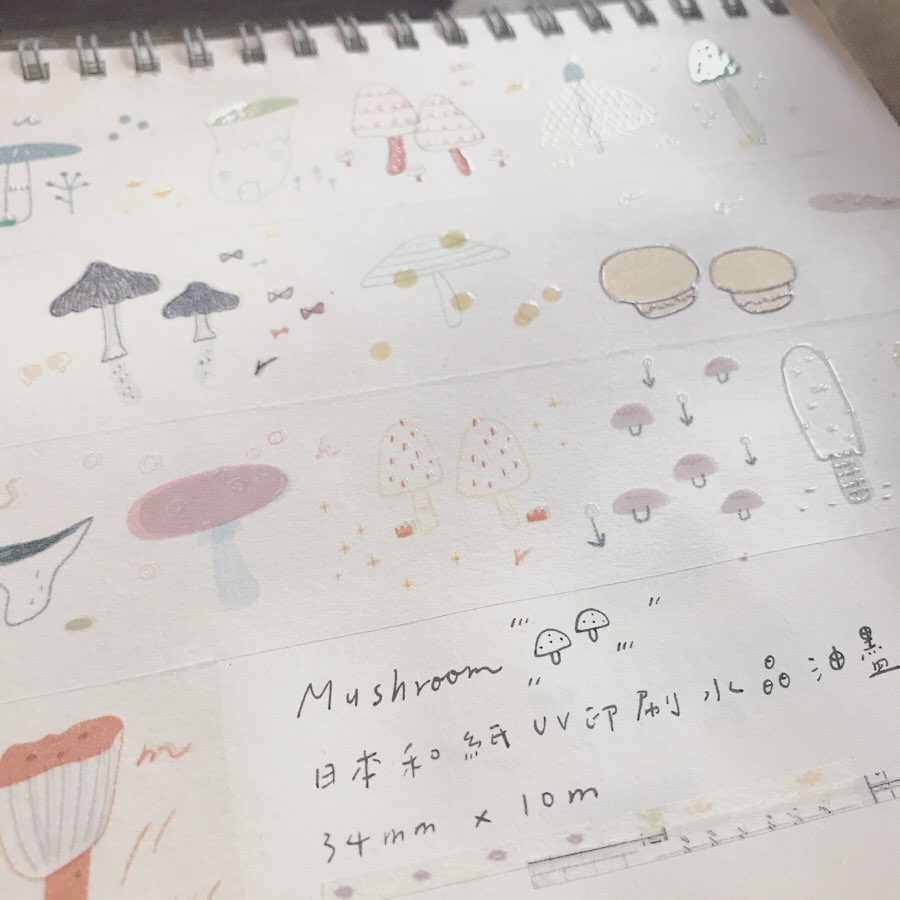 Mushroom
日本和紙 UV印刷 水晶油墨
34mm x 10m